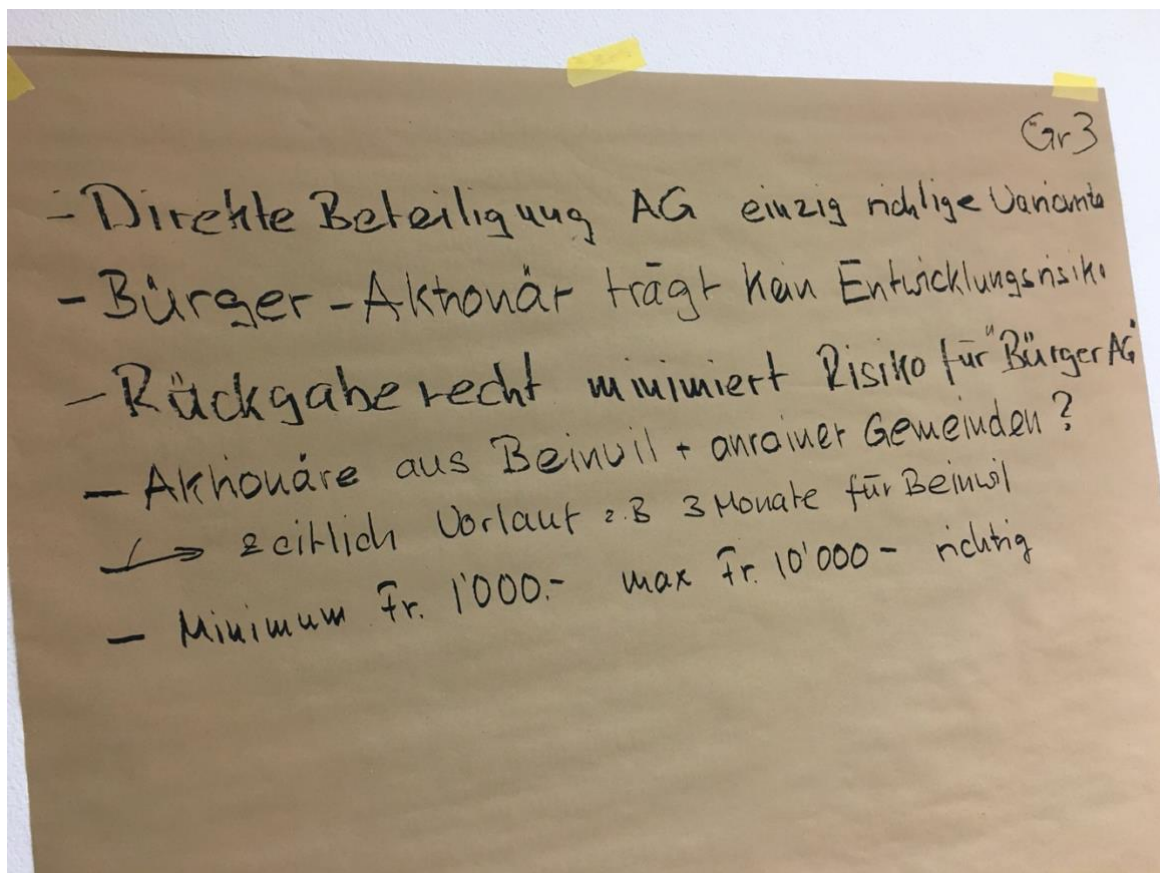 Gr3
- Direkte Beteiligung AG einzig richtige Variante
- Bürger-Aktionär trägt kein Entwicklungsrisiko
- Rückgaberecht minimiert Risiko für "Bürger AG"
- Aktionäre aus Beinwil + anrainer Gemeinden?
↳ zeitlich Vorlauf z.B 3 Monate für Beinwil
- Minimum Fr. 1'000.- max Fr. 10'000- richtig